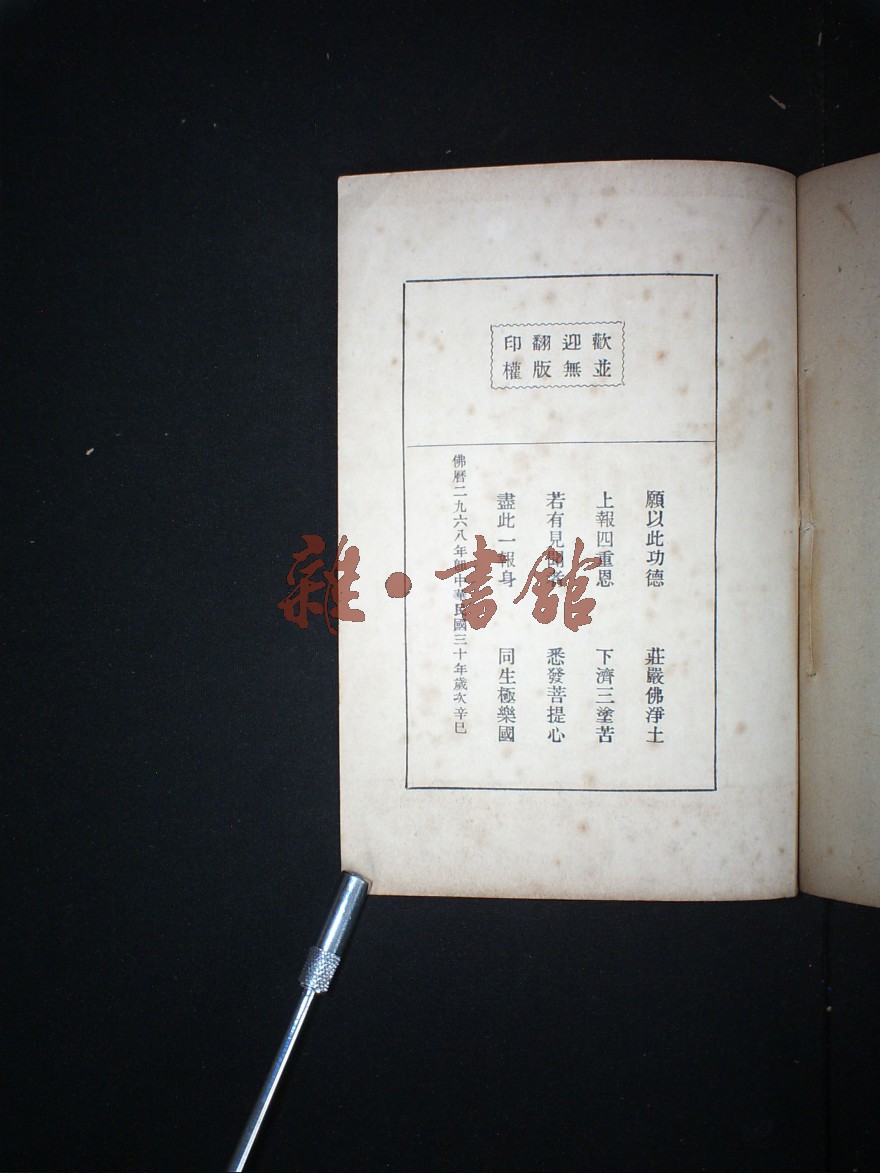 歡迎翻印
並無版權
願以此功德　莊嚴佛淨土
上報四重恩　下濟三塗苦
若有見聞者　悉發菩提心
盡此一報身　同生極樂國
佛曆二九六八年即中華民國三十年歲次辛巳
雜·書館